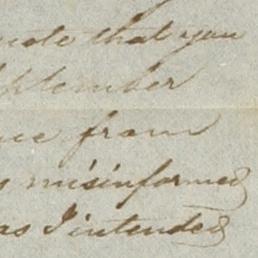 that you
September
from
misinformed
as I intended